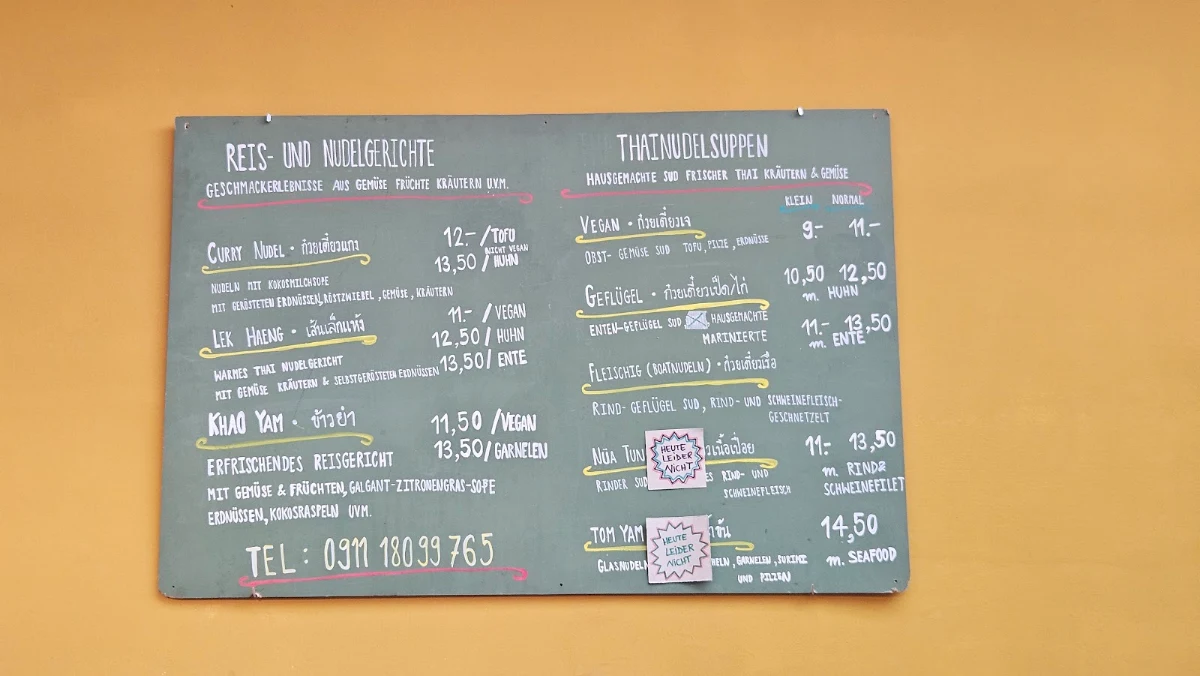 REIS- UND NUDELGERICHTE
GESCHMACKERLEBNISSE AUS GEMÜSE FRÜCHTE KRÄUTERN U.V.M.
CURRY NUDEL · ก๋วยเตี๋ยวแกง
12.- / TOFU
NICHT VEGAN
13,50 / HUHN
NUDELN MIT KOKOSMILCHSOßE
MIT GERÖSTETEN ERDNÜSSEN, RÖSTZWIEBEL, GEMÜSE, KRÄUTERN
LEK HAENG · เส้นเล็กแห้ง
11.- / VEGAN
12,50 / HUHN
13,50 / ENTE
WARMES THAI NUDELGERICHT
MIT GEMÜSE KRÄUTERN & SELBSTGERÖSTETEN ERDNÜSSEN
KHAO YAM · ข้าวยำ
11,50 / VEGAN
13,50 / GARNELEN
ERFRISCHENDES REISGERICHT
MIT GEMÜSE & FRÜCHTEN, GALGANT-ZITRONENGRAS-SOßE
ERDNÜSSEN, KOKOSRASPELN UVM.
TEL: 0911 18099765
THAINUDELSUPPEN
HAUSGEMACHTE SUD FRISCHER THAI KRÄUTERN & GEMÜSE
KLEIN NORMAL
VEGAN · ก๋วยเตี๋ยวเจ
9.- 11.-
OBST- GEMÜSE SUD TOFU, PILZE, ERDNÜSSE
GEFLÜGEL · ก๋วยเตี๋ยวเป็ด/ไก่
10,50 12,50
m. HUHN
ENTEN-GEFLÜGEL SUD, HAUSGEMACHTE
MARINIERTE
11.- 13,50
m. ENTE
FLEISCHIG (BOATNUDELN) · ก๋วยเตี๋ยวเรือ
RIND- GEFLÜGEL SUD, RIND- UND SCHWEINEFLEISCH-
GESCHNETZELT
NÜA TUN
HEUTE
LEIDER
NICHT
วเนื้อเปื่อย
11.- 13,50
RINDER SUD ES RIND- UND
SCHWEINEFLEISCH
m. RIND&
SCHWEINEFILET
TOM YAM
HEUTE
LEIDER
NICHT
14,50
GLASNUDELN HELN, GARNELEN, SURIMI
UND PILZEN
m. SEAFOOD